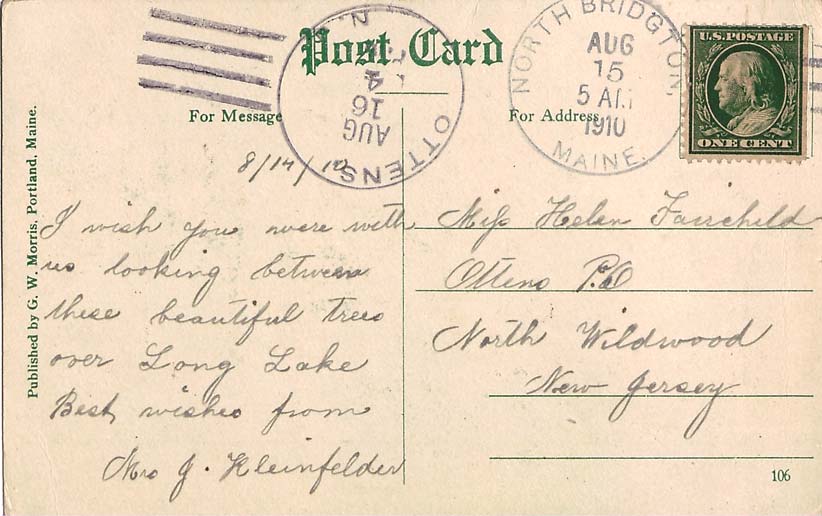 Post Card
For Message
For Address
NORTH BRIDGTON
AUG
15
5 AM
1910
MAINE.
U.S. POSTAGE
ONE CENT
OTTENS
AUG
16
4
N.
8/14/10
I wish you were with
us looking between
these beautiful trees
over Long Lake
Best wishes from
Mrs J. Kleinfelder
Miss Helen Fairchild
Ottens P.O
North Wildwood
New Jersey
Published by G. W. Morris, Portland, Maine.
106